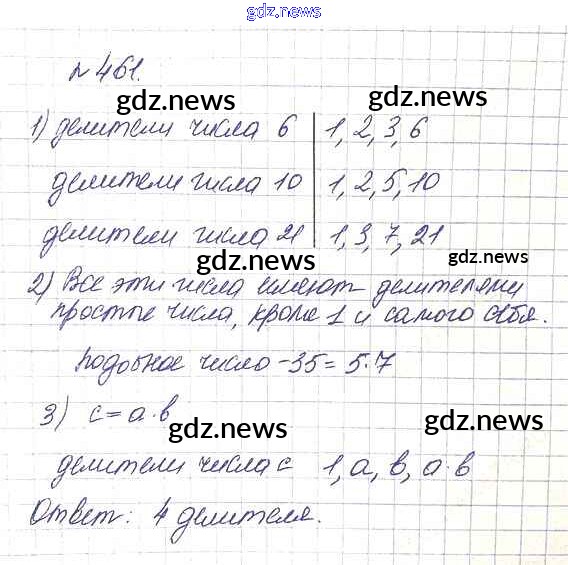 gdz.news
№ 461.
gdz.news gdz.news
1) делители числа 6 | 1, 2, 3, 6
делители числа 10 | 1, 2, 5, 10
делители числа 21 | 1, 3, 7, 21
gdz.news gdz.news
2) Все эти числа имеют делителями
простые числа, кроме 1 и самого себя.
gdz.news
Подобное число - 35 = 5·7
3) c = a·b
gdz.news gdz.news
делители числа c 1, a, b, a·b
Ответ: 4 делителя.
gdz.news